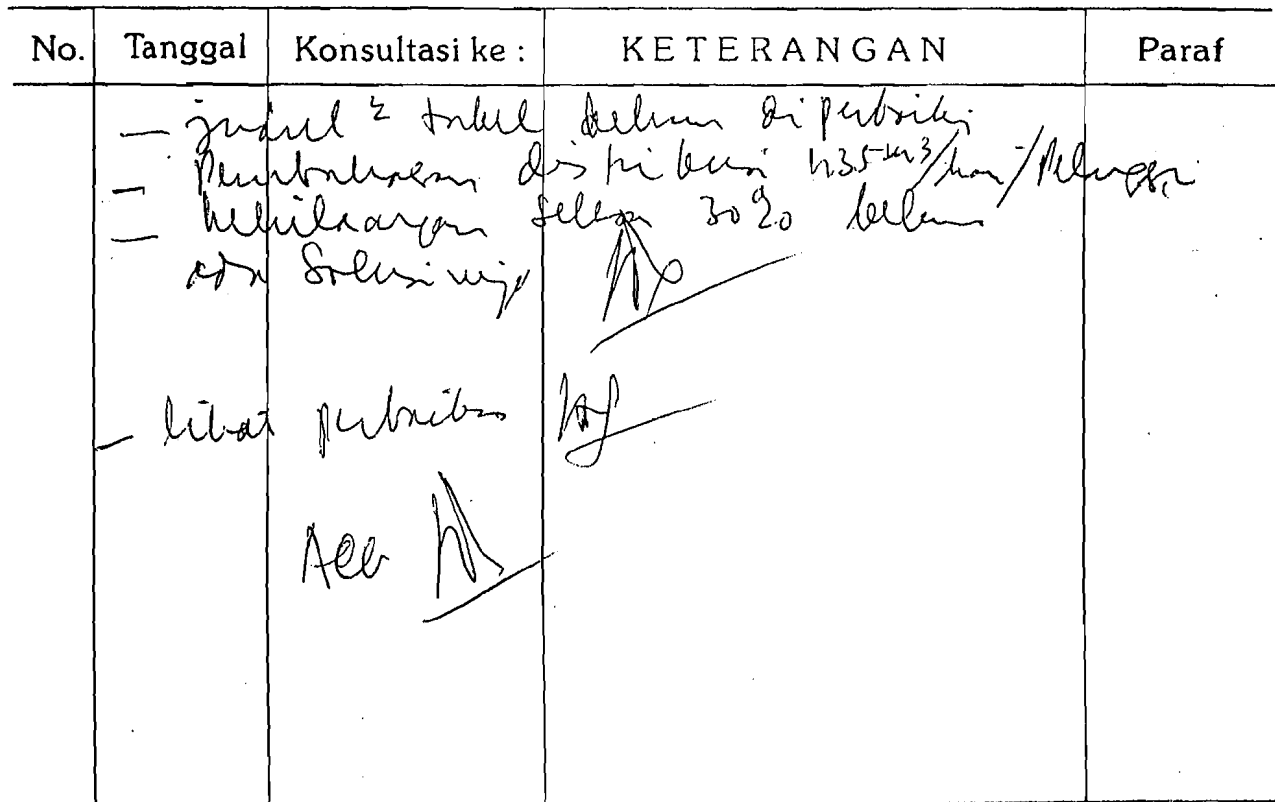 No. Tanggal Konsultasi ke : KETERANGAN Paraf
— judul 2 tabel belum diperbaiki
— Pembahasan distribusi m3/hari/Pelanggan
— kehilangan sebesar 30% belum
ada Solusinya
— lihat perbaikan
Acc